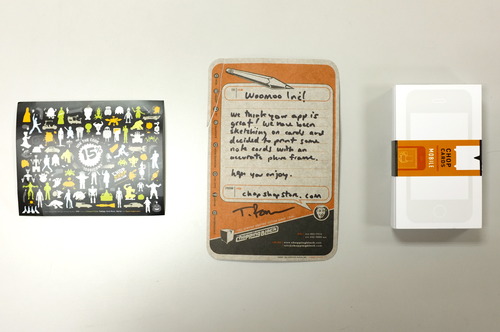 15
Woomoo Inc!
We think your app is
great! We have been
sketching on cards and
decided to print some
note cards with an
accurate phone frame.
hope you enjoy.
chopshopstore.com
choppingblock
CHOP
CARDS
MOBILE